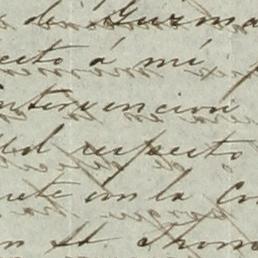 de Guzma
ecto á mí,
intervencion
Ud respecto
rete con la Con
n St. Thom